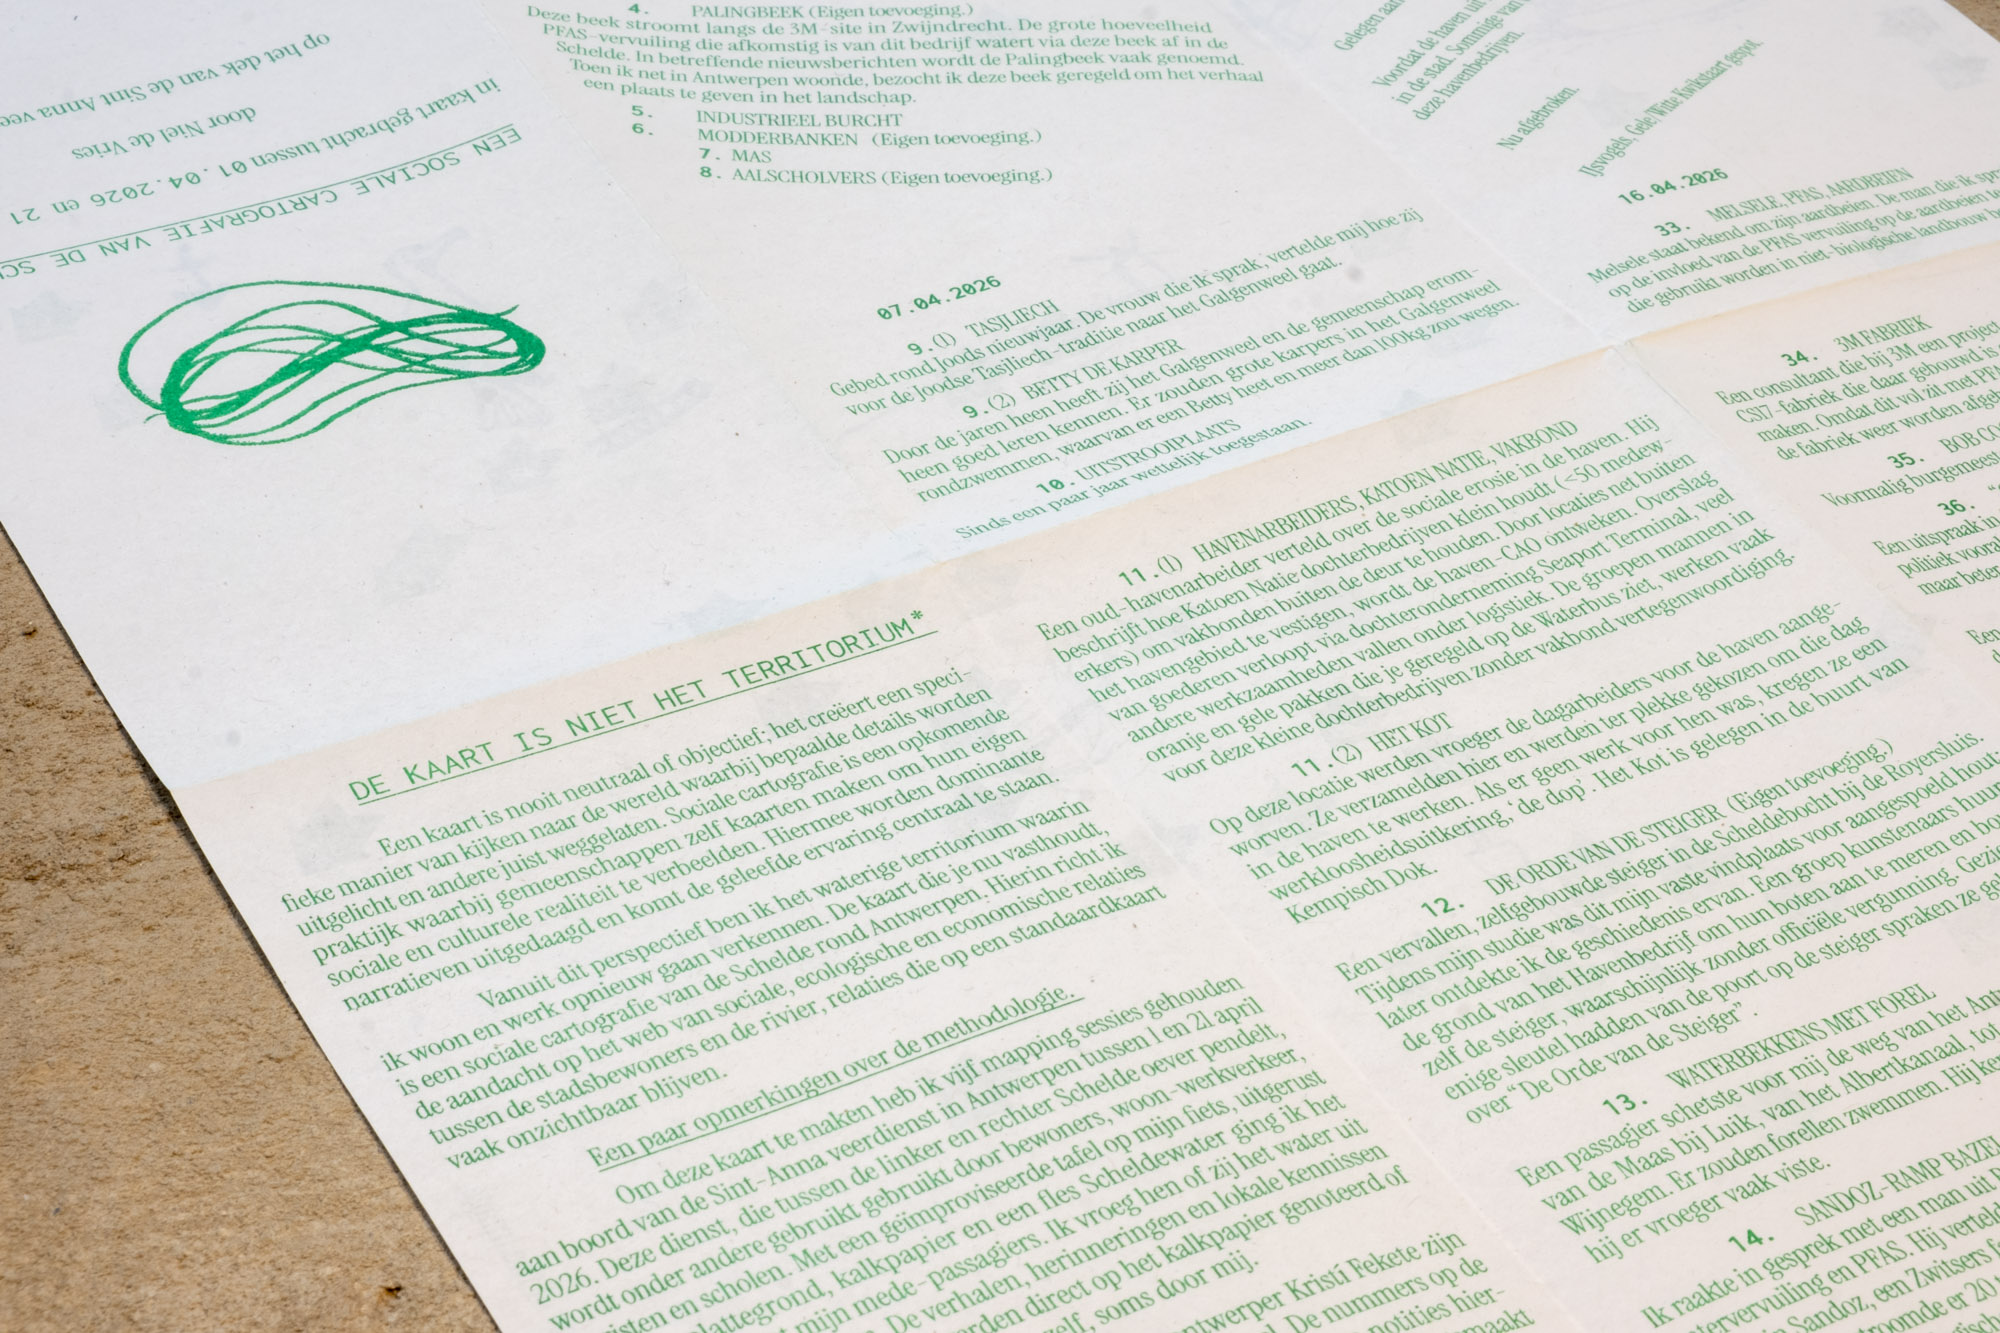 op het dek van de Sint Anna
door Niel de Vries
in kaart gebracht tussen 01.04.2026 en 21
EEN SOCIALE CARTOGRAFIE VAN DE
4. PALINGBEEK (Eigen toevoeging.)
Deze beek stroomt langs de 3M-site in Zwijndrecht. De grote hoeveelheid
PFAS-vervuiling die afkomstig is van dit bedrijf watert via deze beek af in de
Schelde. In betreffende nieuwsberichten wordt de Palingbeek vaak genoemd.
Toen ik net in Antwerpen woonde, bezocht ik deze beek geregeld om het verhaal
een plaats te geven in het landschap.
5. INDUSTRIEEL BURCHT
6. MODDERBANKEN (Eigen toevoeging.)
7. MAS
8. AALSCHOLVERS (Eigen toevoeging.)
07.04.2026
9.(1) TASJLIECH
Gebed rond Joods nieuwjaar. De vrouw die ik sprak, vertelde mij hoe zij
voor de Joodse Tasjliech-traditie naar het Galgenweel gaat.
9.(2) BETTY DE KARPER
Door de jaren heen heeft zij het Galgenweel en de gemeenschap erom-
heen goed leren kennen. Er zouden grote karpers in het Galgenweel
rondzwemmen, waarvan er een Betty heet en meer dan 100kg zou wegen.
10. UITSTROOIPLAATS
Sinds een paar jaar wettelijk toegestaan.
Gelegen aan
Voordat de haven uit
in de stad. Sommige van
deze havenbedrijven.
Nu afgebroken.
IJsvogels, Gele/Witte Kwikstaart gespot.
16.04.2026
33. MELSELE, PFAS, AARDBEIEN
Melsele staat bekend om zijn aardbeien. De man die ik
op de invloed van de PFAS-vervuiling op de aardbeien
die gebruikt worden in niet-biologische landbouw
34. 3M FABRIEK
Een consultant die bij 3M een project
CS17-fabriek die daar gebouwd is
maken. Omdat dit vol zit met
de fabriek weer worden
35. BOB
Voormalig
36.
Een uitspraak in
politiek
maar
Een
DE KAART IS NIET HET TERRITORIUM*
Een kaart is nooit neutraal of objectief; het creëert een speci-
fieke manier van kijken naar de wereld waarbij bepaalde details worden
uitgelicht en andere juist weggelaten. Sociale cartografie is een opkomende
praktijk waarbij gemeenschappen zelf kaarten maken om hun eigen
sociale en culturele realiteit te verbeelden. Hiermee worden dominante
narratieven uitgedaagd en komt de geleefde ervaring centraal te staan.
Vanuit dit perspectief ben ik het waterige territorium waarin
ik woon en werk opnieuw gaan verkennen. De kaart die je nu vasthoudt,
is een sociale cartografie van de Schelde rond Antwerpen. Hierin richt ik
de aandacht op het web van sociale, ecologische en economische relaties
tussen de stadsbewoners en de rivier, relaties die op een standaardkaart
vaak onzichtbaar blijven.
Een paar opmerkingen over de methodologie.
Om deze kaart te maken heb ik vijf mapping sessies gehouden
aan boord van de Sint-Anna veerdienst in Antwerpen tussen 1 en 21 april
2026. Deze dienst, die tussen de linker en rechter Schelde oever pendelt,
wordt onder andere gebruikt door bewoners, woon-werkverkeer,
en scholen. Met een geïmproviseerde tafel op mijn fiets, uitgerust
kalkpapier en een fles Scheldewater ging ik het
mijn mede-passagiers. Ik vroeg hen of zij het water uit
De verhalen, herinneringen en lokale kennissen
direct op het kalkpapier genoteerd of
soms door mij.
Kristí Fekete zijn
De nummers op de
11.(1) HAVENARBEIDERS, KATOEN NATIE, VAKBOND
Een oud-havenarbeider verteld over de sociale erosie in de haven. Hij
beschrijft hoe Katoen Natie dochterbedrijven klein houdt (<50 medew-
erkers) om vakbonden buiten de deur te houden. Door locaties net buiten
het havengebied te vestigen, wordt de haven-CAO ontweken. Overslag
van goederen verloopt via dochteronderneming Seaport Terminal, veel
andere werkzaamheden vallen onder logistiek. De groepen mannen in
oranje en gele pakken die je geregeld op de Waterbus ziet, werken vaak
voor deze kleine dochterbedrijven zonder vakbond vertegenwoordiging.
11.(2) HET KOT
Op deze locatie werden vroeger de dagarbeiders voor de haven aange-
worven. Ze verzamelden hier en werden ter plekke gekozen om die dag
in de haven te werken. Als er geen werk voor hen was, kregen ze een
werkloosheidsuitkering, ‘de dop’. Het Kot is gelegen in de buurt van
Kempisch Dok.
12. DE ORDE VAN DE STEIGER (Eigen toevoeging.)
Een vervallen, zelfgebouwde steiger in de Scheldebocht bij de Royersluis.
Tijdens mijn studie was dit mijn vaste vindplaats voor aangespoeld hout;
later ontdekte ik de geschiedenis ervan. Een groep kunstenaars
de grond van het Havenbedrijf om hun boten aan te meren en
zelf de steiger, waarschijnlijk zonder officiële vergunning.
enige sleutel hadden van de poort op de steiger spraken ze
over “De Orde van de Steiger”
13. WATERBEKKENS MET FOREL
Een passagier schetste voor mij de weg van het
van de Maas bij Luik, van het Albertkanaal, tot
Wijnegem. Er zouden forellen zwemmen. Hij
hij er vroeger vaak viste.
14. SANDOZ-RAMP
Ik raakte in gesprek met een man uit
en PFAS. Hij
Sandoz, een Zwitsers
er 20